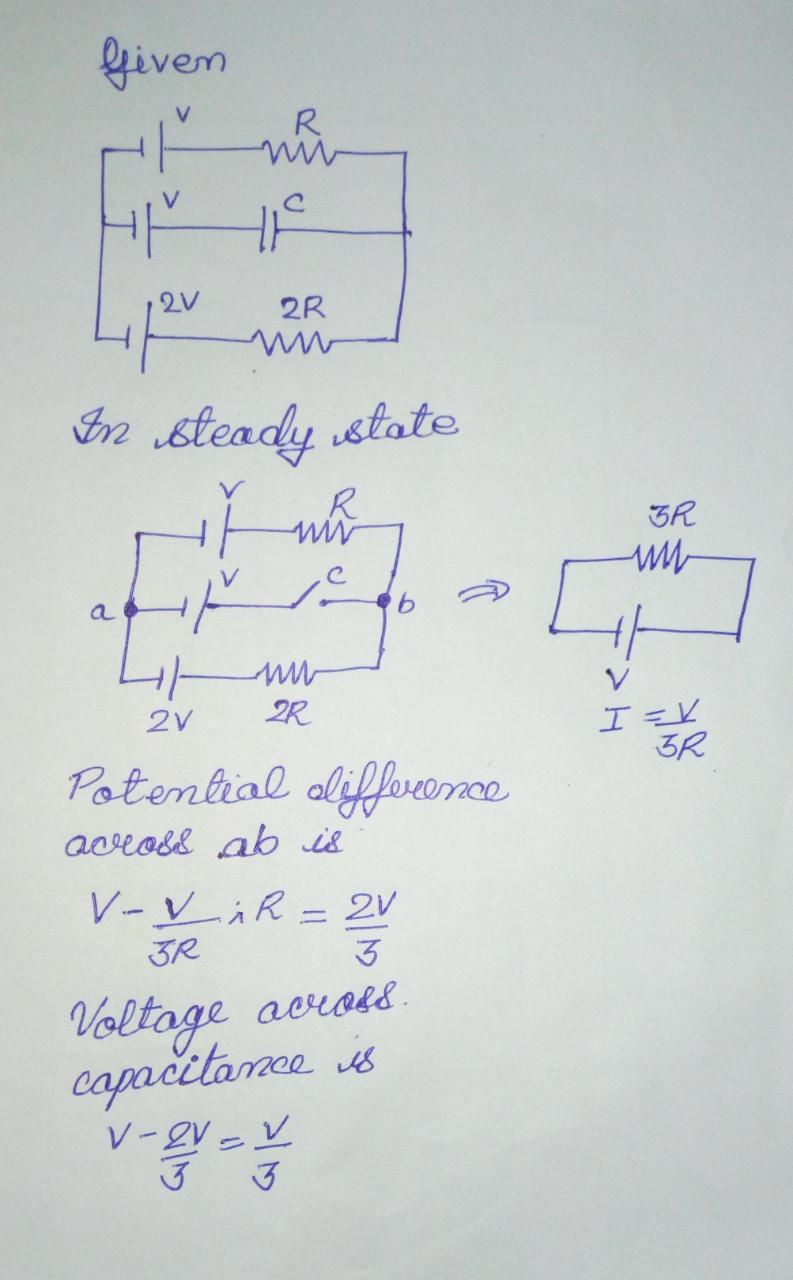 Given
V R
V C
2V 2R
In steady state
V R
3R
a V C b ⇒
2V 2R
V
I = V/3R
Potential difference
across ab is
V - V/3R i R = 2V/3
Voltage across.
capacitance is
V - 2V/3 = V/3